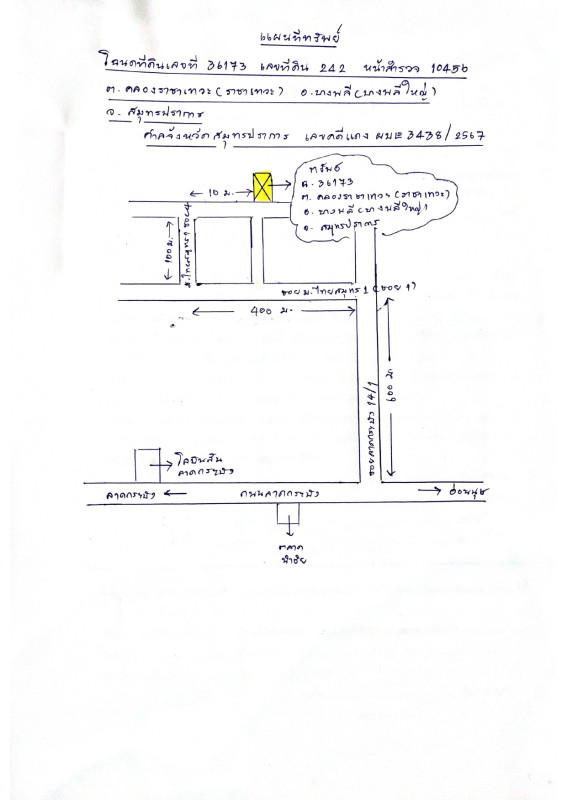 แผนที่ทรัพย์
โฉนดที่ดินเลขที่ 36173 เลขที่ดิน 242 หน้าสำรวจ 10456
ต. คลองราชาเทวะ (ราชาเทวะ) อ. บางพลี (บางพลีใหญ่)
จ. สมุทรปราการ
ศาลจังหวัดสมุทรปราการ เลขคดีแดง ผบE 3438/2567
ทรัพย์
ฉ. 36173
ต. คลองราชาเทวะ (ราชาเทวะ)
อ. บางพลี (บางพลีใหญ่)
จ. สมุทรปราการ
10 ม.
100 ม.
ซอย ม. ไทยสมุทร 1 (ซอย 1)
400 ม.
600 ม.
ซอยลาดกระบัง 14/1
โลตัส
ลาดกระบัง
ลาดกระบัง
ถนนลาดกระบัง
อ่อนนุช
ตลาด